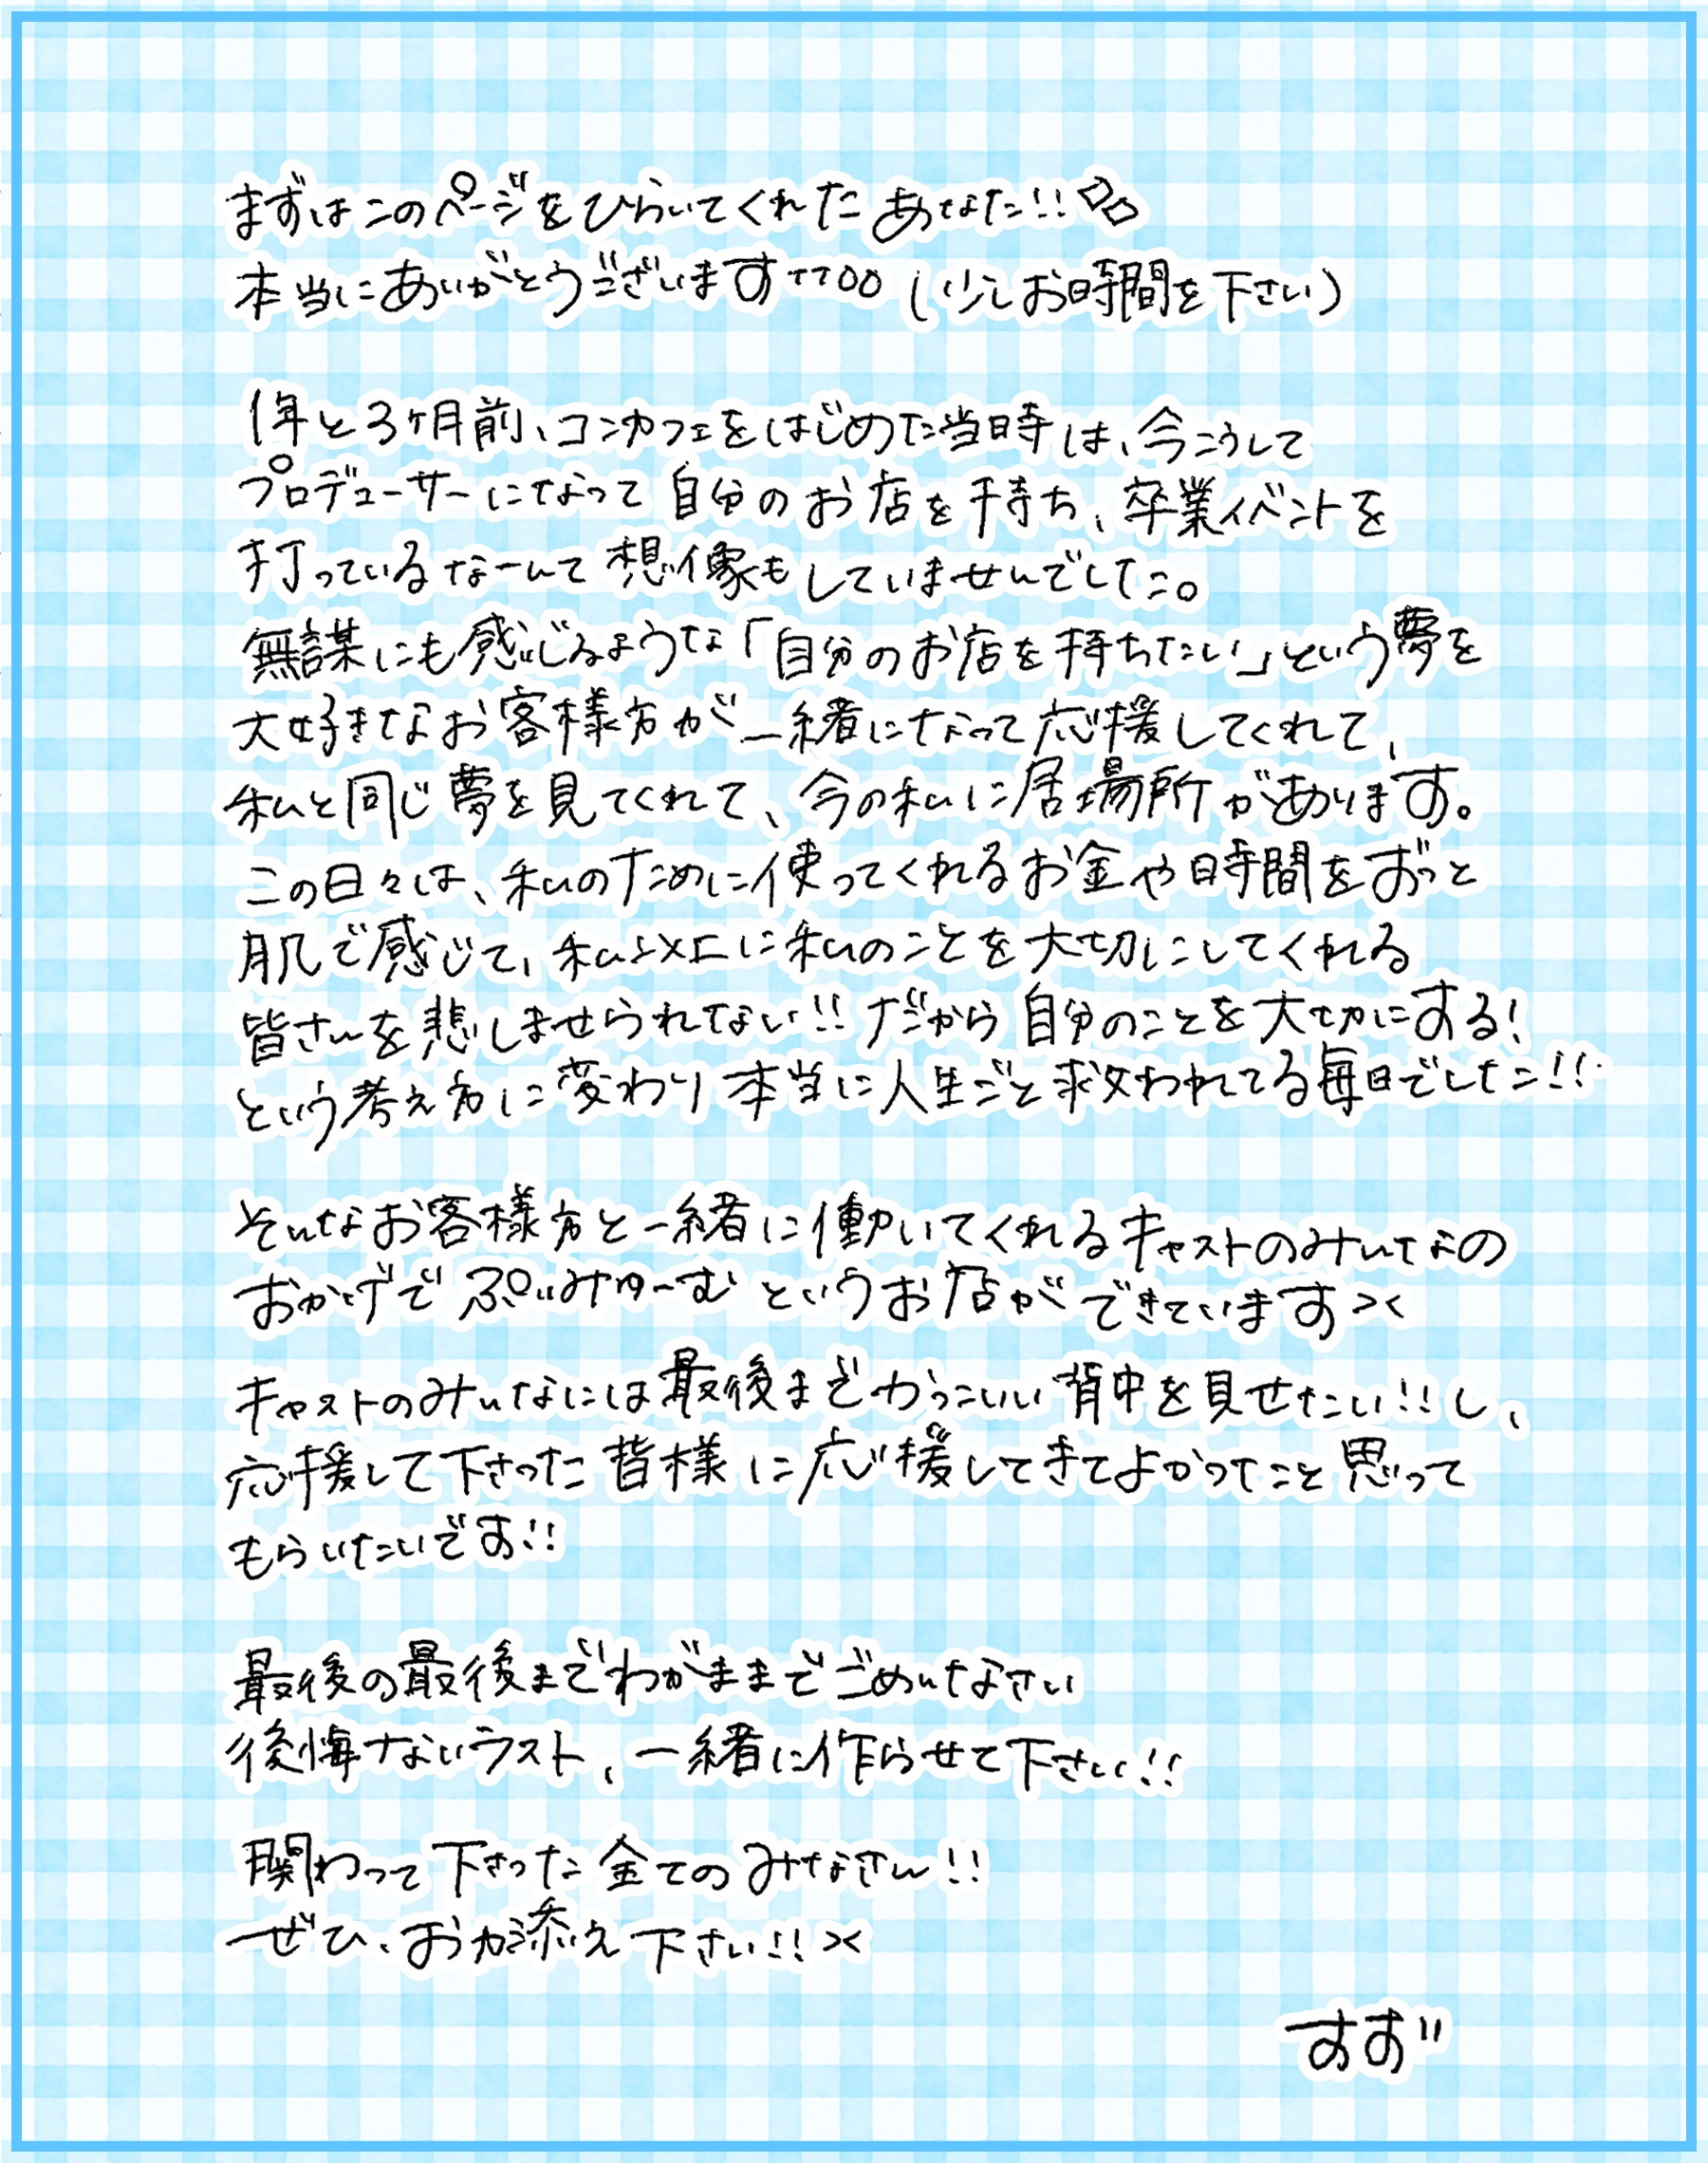 まずはこのページをひらいてくれたあなた!!
本当にありがとうございますTT00(少しお時間を下さい)
1年と3ヶ月前、コンカフェをはじめた当時は、今こうして
プロデューサーになって自分のお店を持ち、卒業イベントを
打っているなーんて想像もしていませんでした。
無謀にも感じるような「自分のお店を持ちたい」という夢を
大好きなお客様方が一緒になって応援してくれて、
私と同じ夢を見てくれて、今の私に居場所があります。
この日々は、私のために使ってくれるお金や時間をずっと
肌で感じて、私以上に私のことを大切にしてくれる
皆さんを悲しませられない!!だから自分のことを大切にする!
という考え方に変わり本当に人生ごと救われてる毎日でした!!
そんなお客様方と一緒に働いてくれるキャストのみんなの
おかげでぷりみゅーむというお店ができています><
キャストのみんなには最後までかっこいい背中を見せたい!!し、
応援して下さった皆様に応援してきてよかったこと思って
もらいたいです!!
最後の最後までわがままでごめんなさい
後悔ないラスト、一緒に作らせて下さい!!
関わって下さった全てのみなさん!!
ぜひ、お力添え下さい!!><
すず